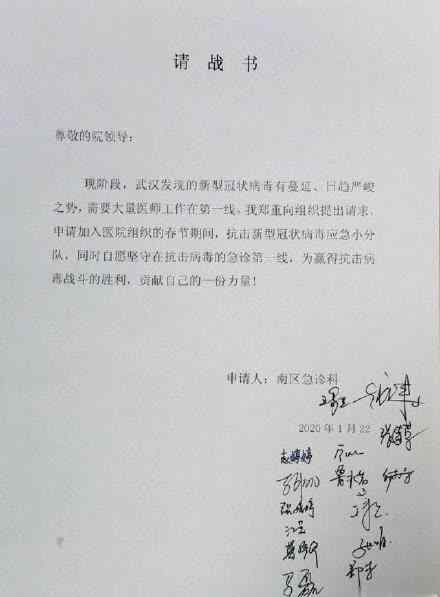 请战书
尊敬的院领导：
现阶段，武汉发现的新型冠状病毒有蔓延、日趋严峻
之势，需要大量医师工作在第一线。我郑重向组织提出请求，
申请加入医院组织的春节期间，抗击新型冠状病毒应急小分
队，同时自愿坚守在抗击病毒的急诊第一线，为赢得抗击病
毒战斗的胜利，贡献自己的一份力量！
申请人：南区急诊科
2020年1月22